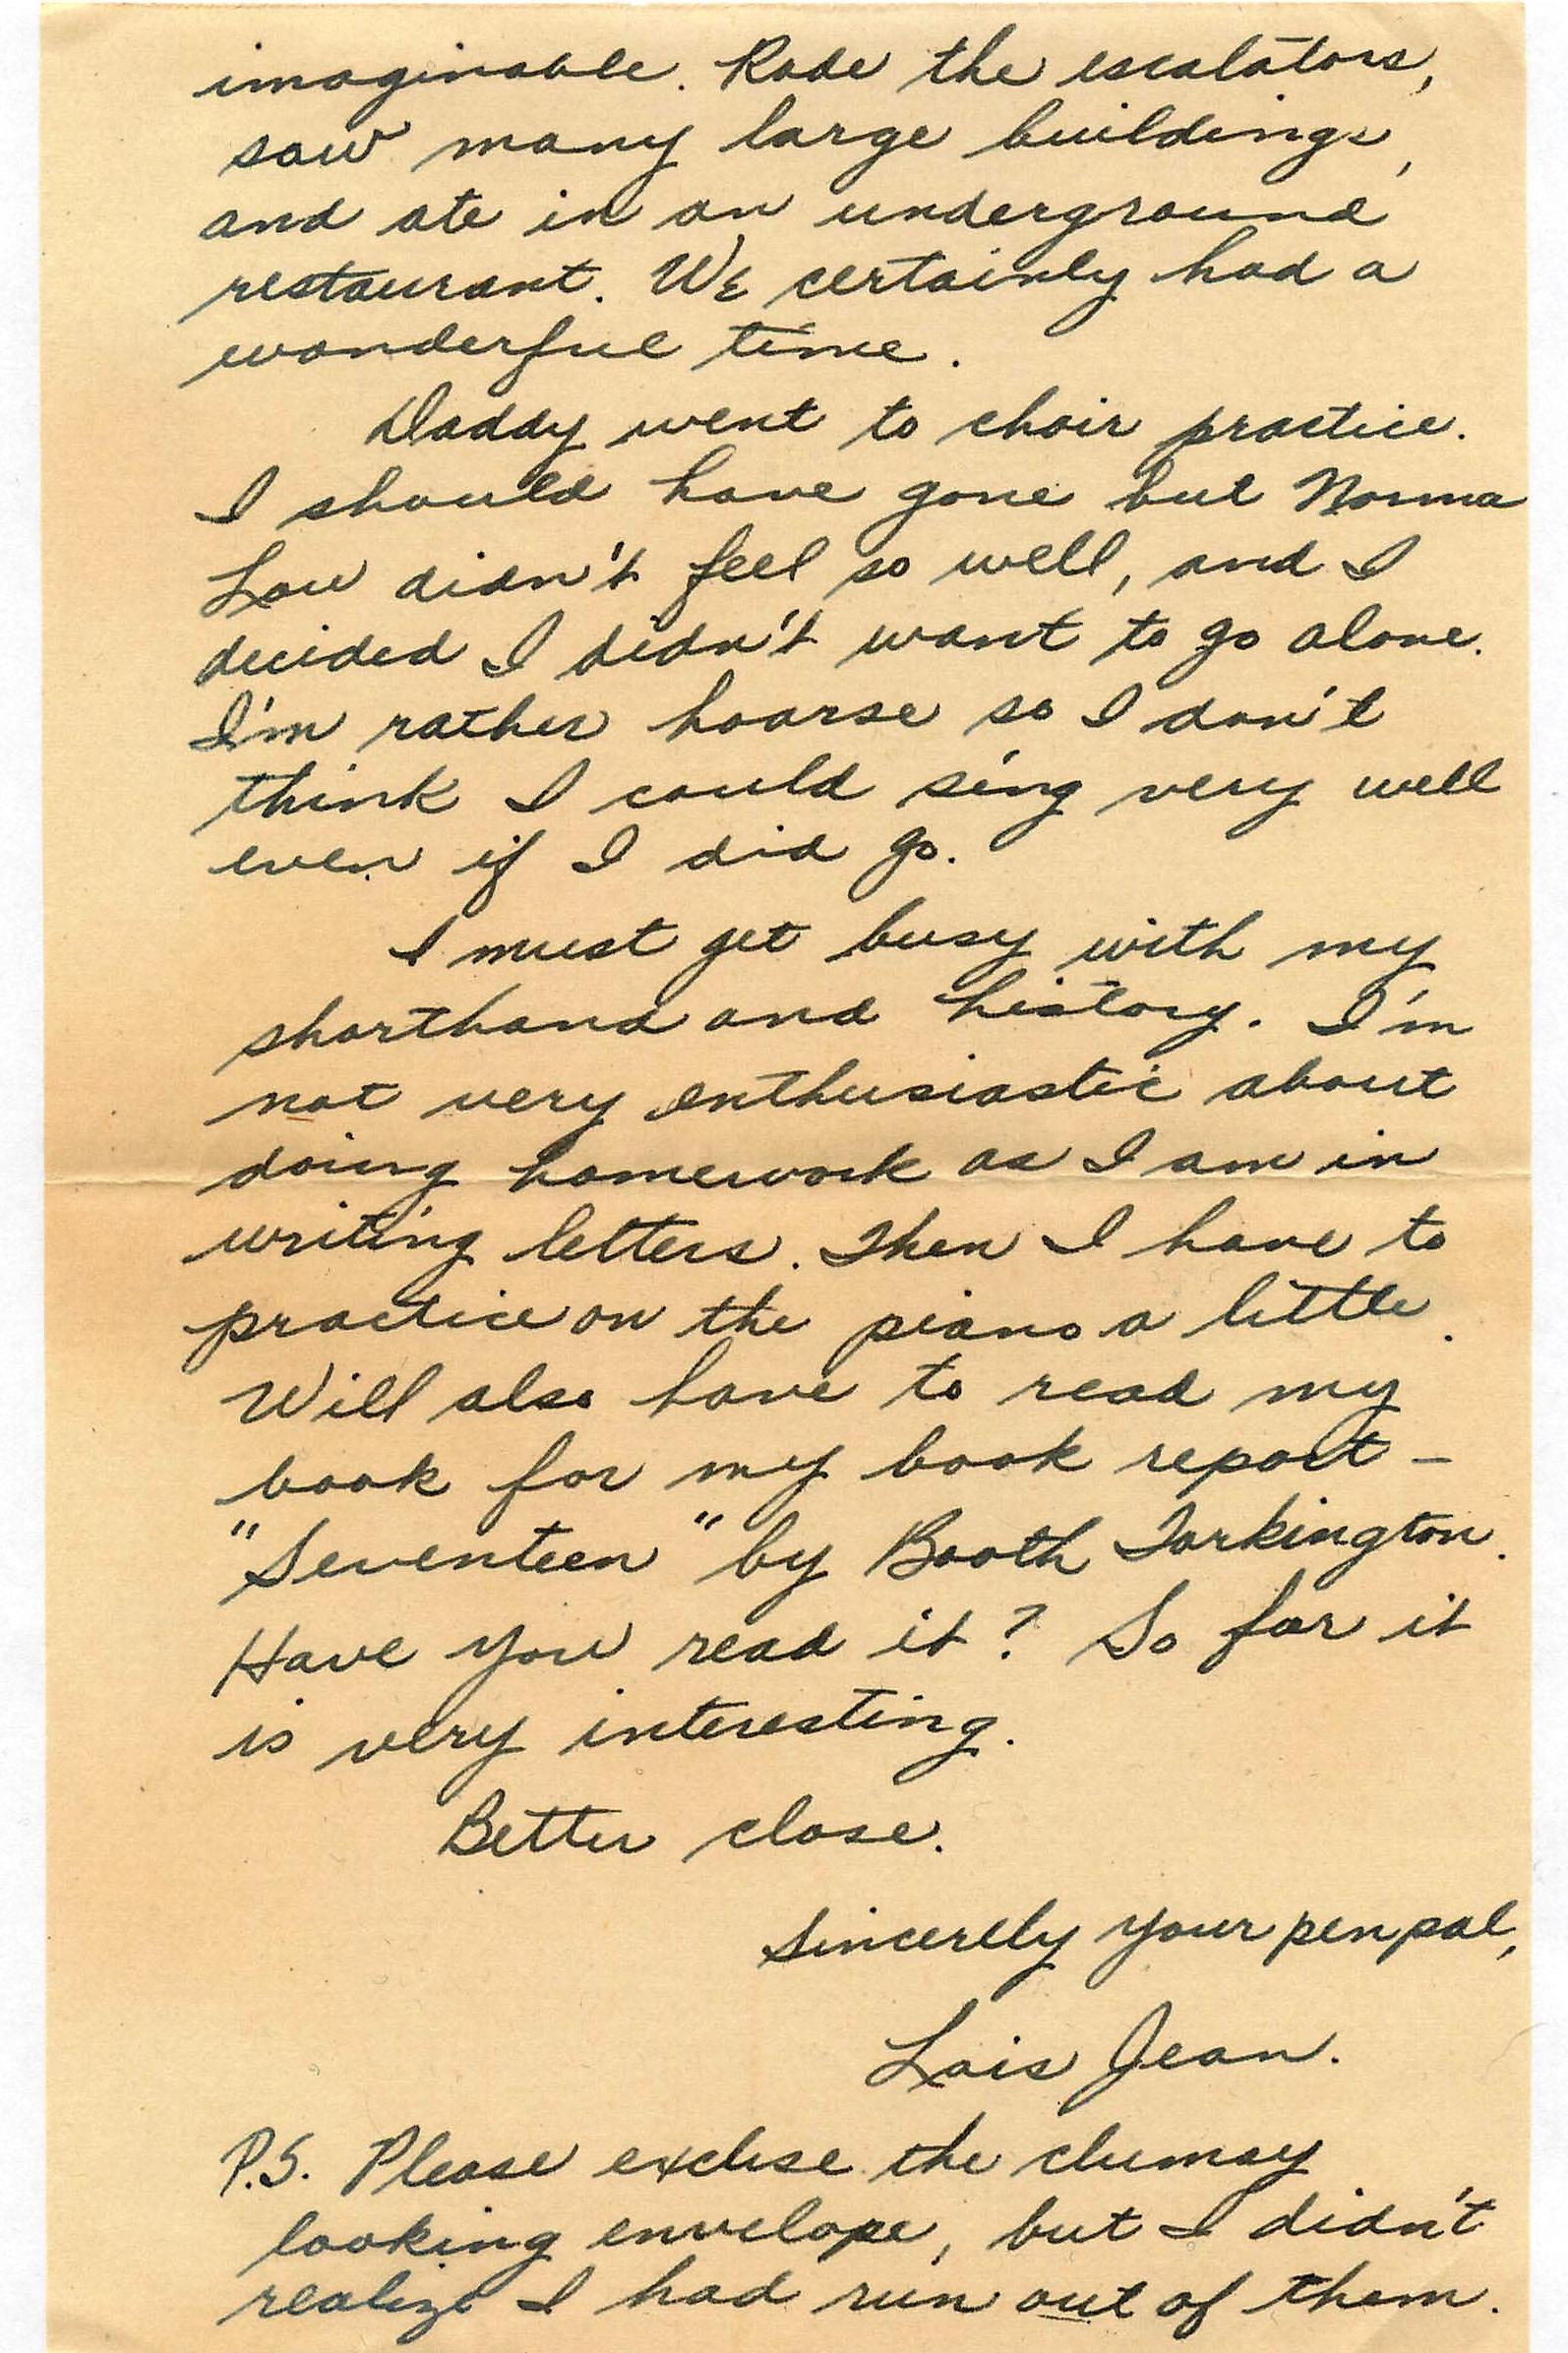 imaginable. Rode the escalators,
saw many large buildings,
and ate in an underground
restaurant. We certainly had a
wonderful time.
Daddy went to choir practice.
I should have gone but Norma
Lou didn't feel so well, and I
decided I didn't want to go alone.
I'm rather hoarse so I don't
think I could sing very well
even if I did go.
I must get busy with my
shorthand and history. I'm
not very enthusiastic about
doing homework as I am in
writing letters. Then I have to
practice on the piano a little.
Will also have to read my
book for my book report -
"Seventeen" by Booth Tarkington.
Have you read it? So far it
is very interesting.
Better close.
Sincerely your pen pal,
Lois Jean.
P.S. Please excuse the clumsy
looking envelope, but I didn't
realize I had run out of them.